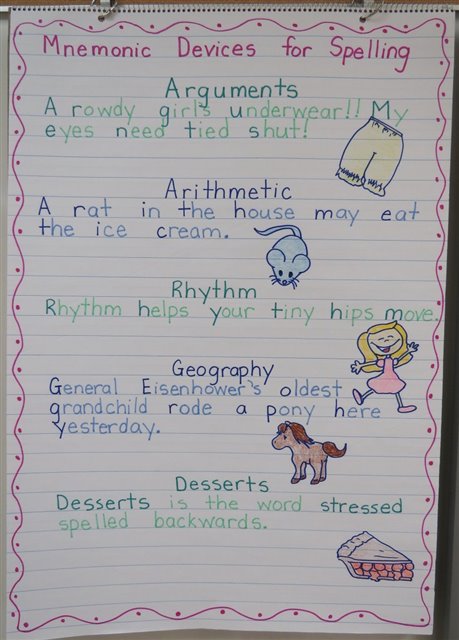 Mnemonic Devices for Spelling
Arguments
A rowdy girl's underwear!! My
eyes need tied shut!
Arithmetic
A rat in the house may eat
the ice cream.
Rhythm
Rhythm helps your tiny hips move.
Geography
General Eisenhower's oldest
grandchild rode a pony here
yesterday.
Desserts
Desserts is the word stressed
spelled backwards.